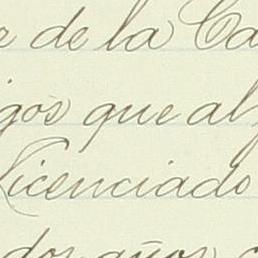 e de la Ca
igos que al
Licenciado
dos años